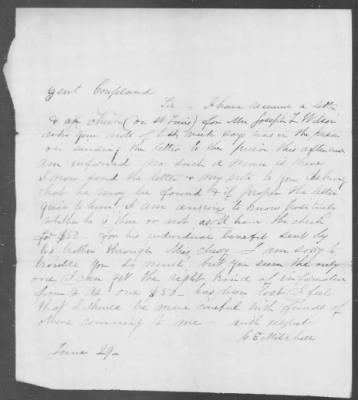 Genl Copeland
Sir - I have receive a letter
& a check (on St Louis) for Mr Joseph L Wilson
who your note of last week says was in the prison
on sending the letter to the prison this afternoon
am informed no such a man is there
I now send the letter & my note to you desiring
that he may be found & if proper the letter
given to him. I am anxious to know positively
whether he is there or not as I have the check
for $50 - for his individual benefit sent by
his
through
I am sorry to
trouble you so much but you seem the only
one I can get the right kind of information
from & the one $50 - has been lost I feel
that I should be more careful with funds of
others comming to me - with respect
C E Mitchell
June 29 -